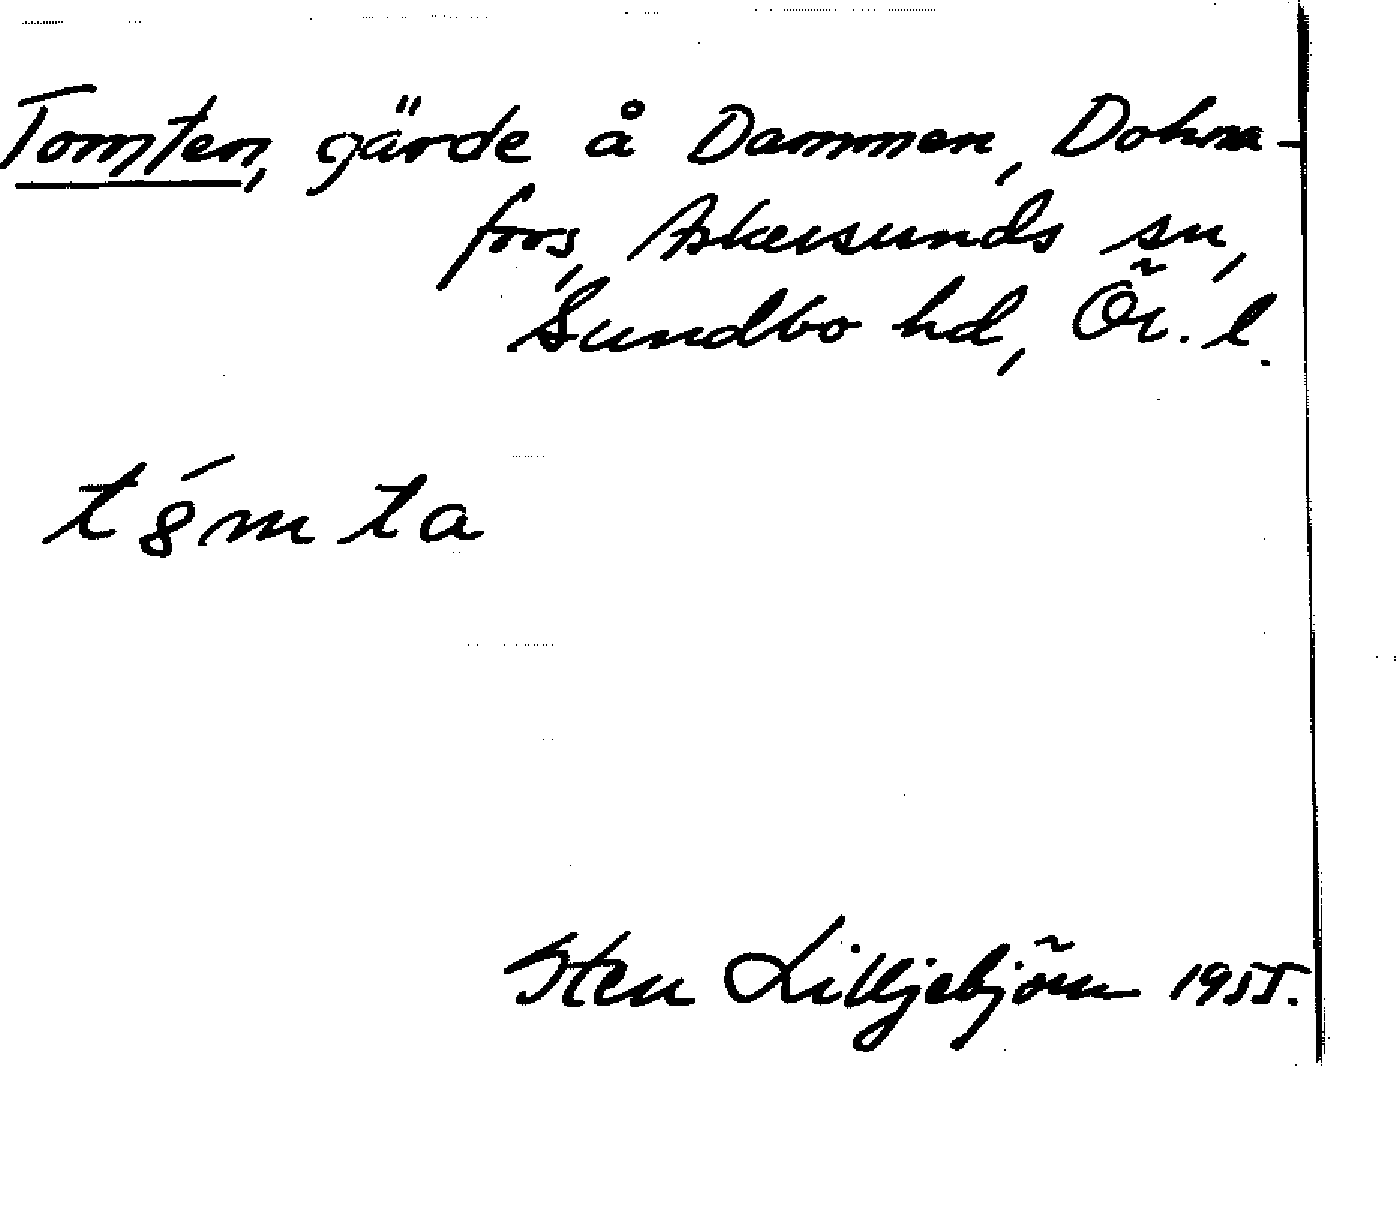 Tomten, gärde å Dammen, Dohna-
fors, Askersunds sn,
Sundbo hd, Ör. l.
t ǵ m t a
Sten Lilljebjörn 1955.